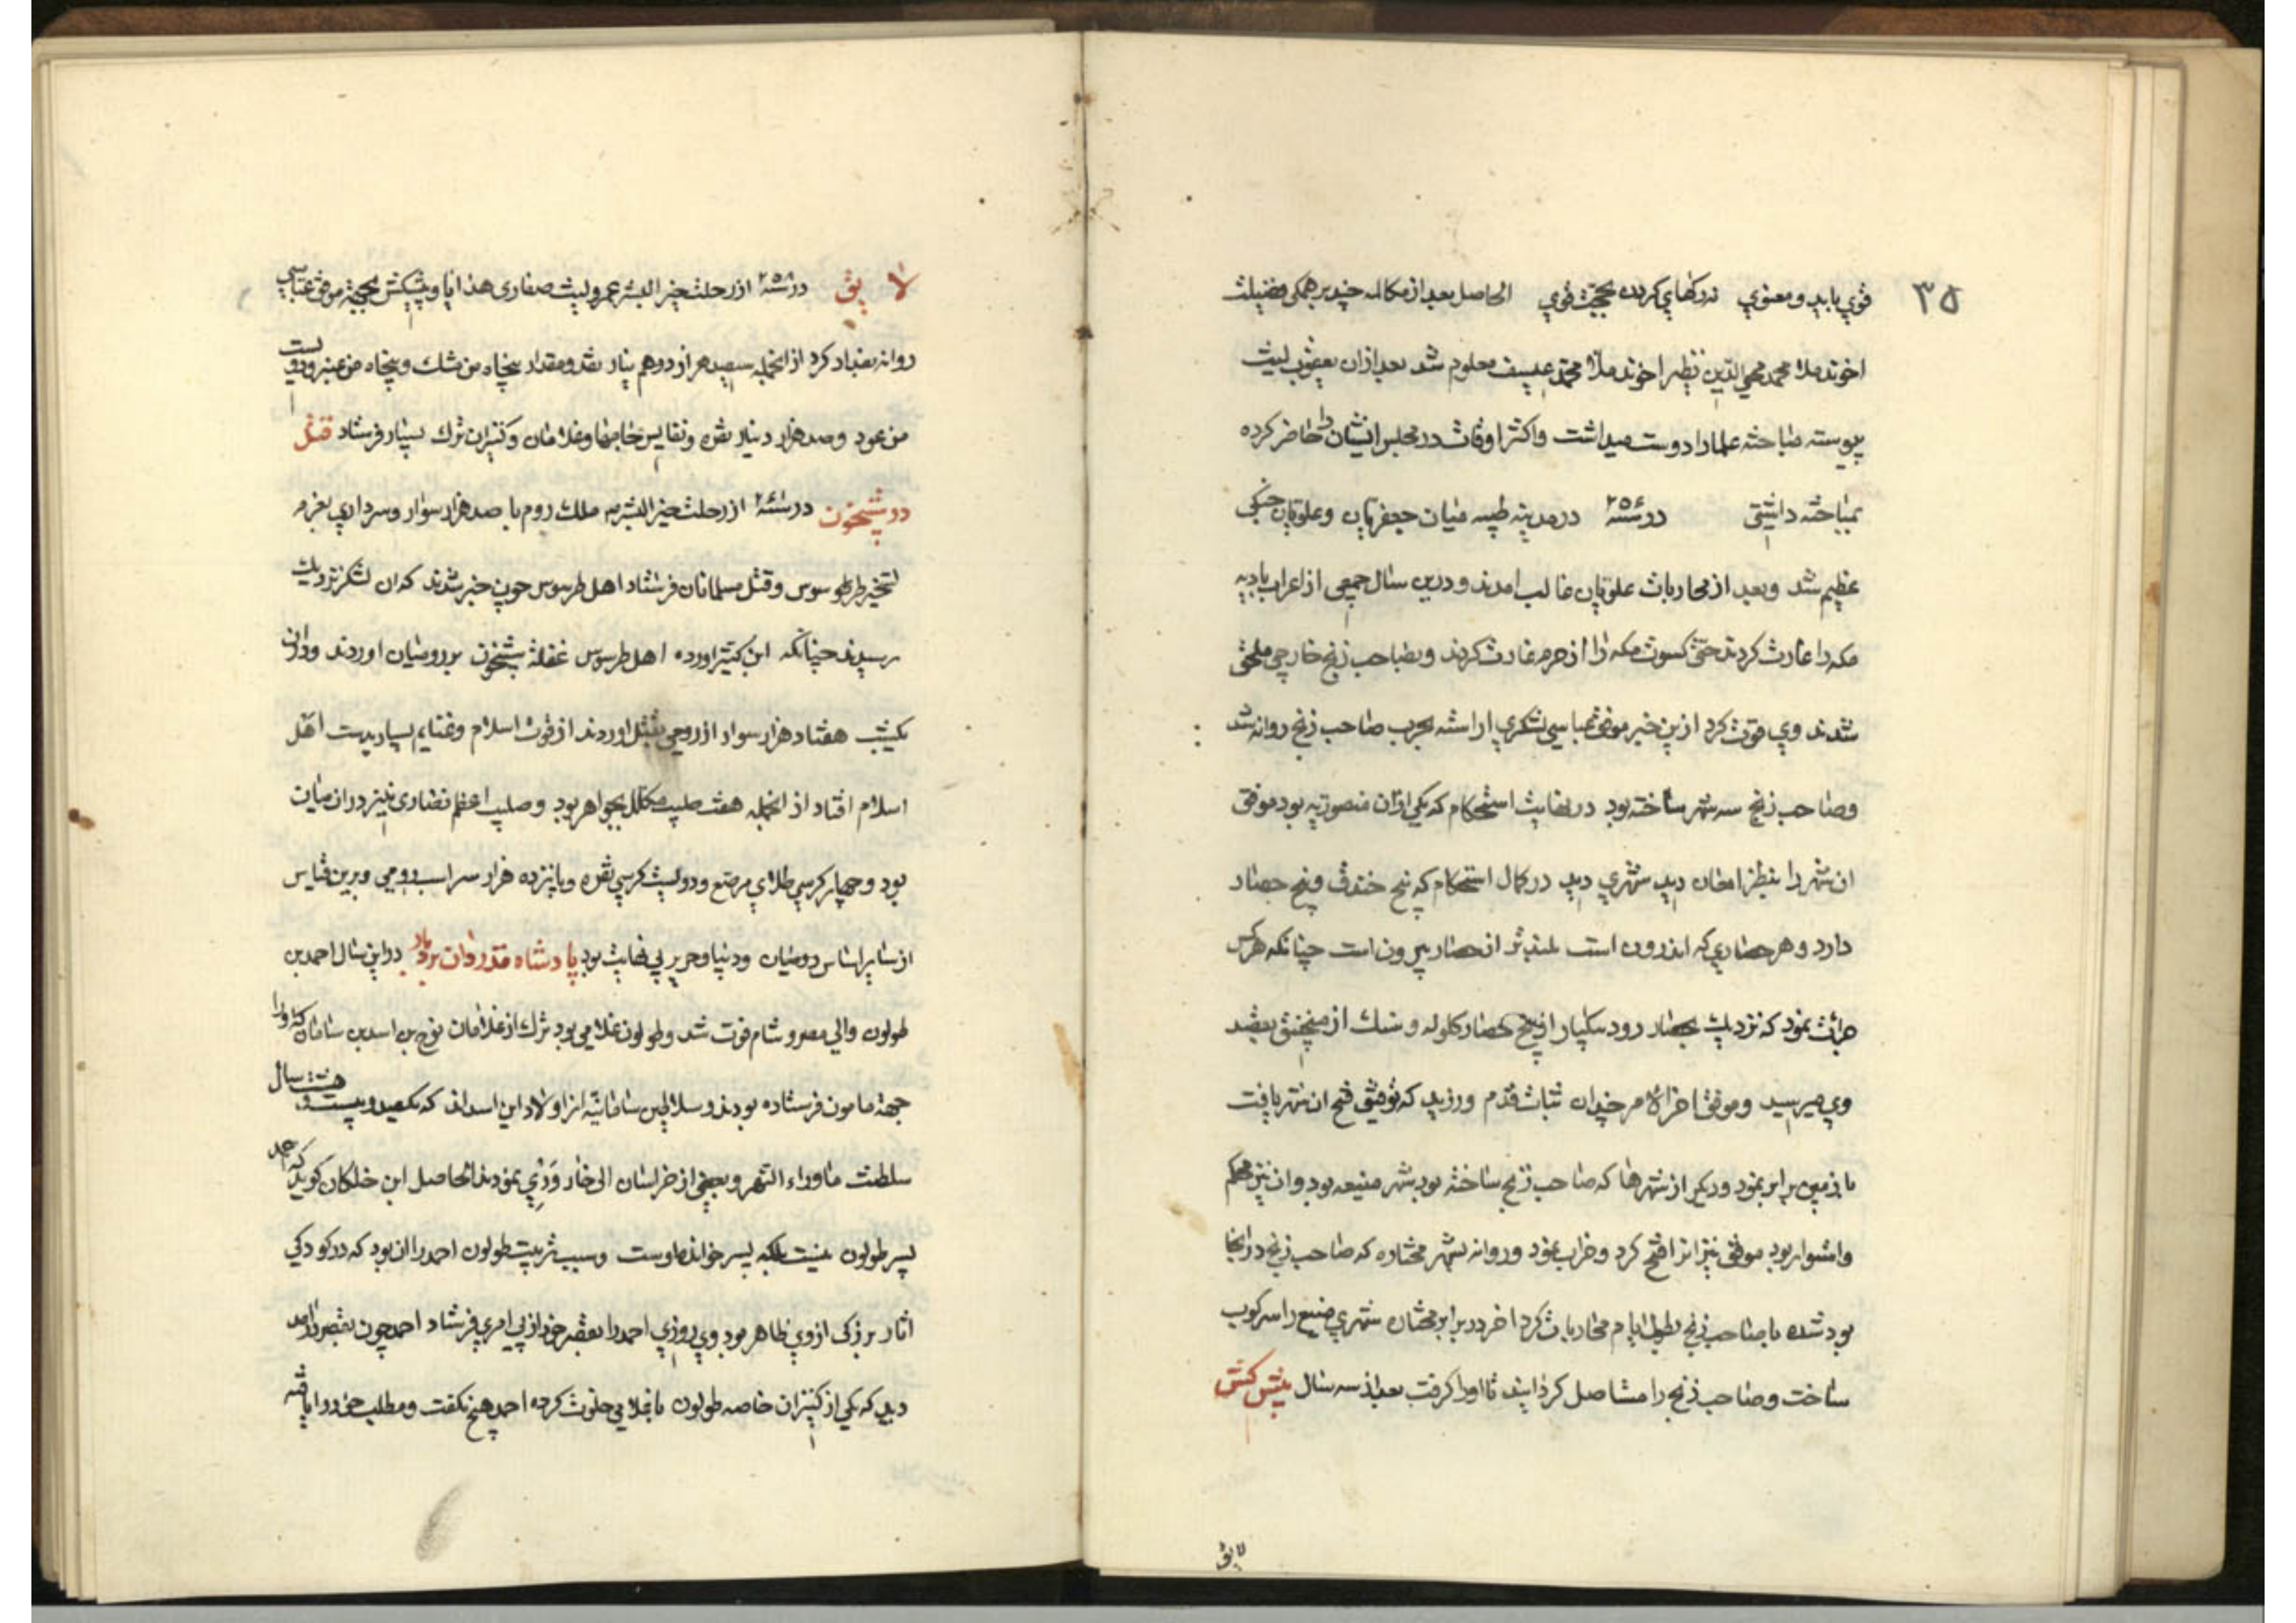 ٣۵
قوي بايد ومعنوي نه ركهاي كردن بحجت قوي الحاصل بعد از مكالمه چند بر همكى فضيلت
اخوند ملا محمد محي الدين نظر اخوند ملا محمد عيسى معلوم شد بعد ازان يعقوب ليث
پيوسته مباحثه علما را دوست ميداشت واكثر اوقات در مجلس ايشان را حاضر كرده
بمباحثه داشتى در سنه ٢٥٦ در مدينه طيبه ميان جعفريان وعلويان جنكى
عظيم شد وبعد از محاربات علويان غالب امدند ودرين سال جمعى از اعراب باديه
مكه را غارت كردند حتى كسوت مكه را از حرم غارت كردند وبصاحب زنج خارجي ملحق
شدند وي قوت كرد ازين خبر موفق عباسي لشكري اراسته بحرب صاحب زنج روانه شد
وصاحب زنج سه شهر ساخته بود در نهايت استحكام كه يكى ازان منصوريه بود موفق
ان شهر را بنظر امعان ديد شهري ديد در كمال استحكام كه پنج خندق وپنج حصار
دارد وهر حصاري كه اندرون است بلندتر از حصار بيرون است چنانكه هر كس
جرات نمود كه نزديك بحصار رود يكبار از پنج حصار كلوله وسنك از منجنيق بقصد
وي ميرسيد وموفق اخر الامر چندان ثبات قدم ورزيد كه توفيق فتح ان شهر يافت
با زمين برابر نمود وديكر از شهرها كه صاحب زنج ساخته بود شهر منيعه بود وان نيز محكم
واستوار بود موفق نيز انرا فتح كرد وخراب نمود وروانه شهر مختاره كه صاحب زنج در انجا
بود شده با صاحب زنج بطول ايام محاربات كرد اخر در برابر مختاره شهري منيع را سركوب
ساخت وصاحب زنج را مستاصل كردانيد تا اورا كرفت بعد از سه سال پيش كش
لايق
لا يق در سنه ٢٥٨ از رحلت خير البشر عمرو ليث صفارى هدايا وپيشكش بجهة موفق عباسي
روانه بغداد كرد از انجمله سيصد هزار درهم نقد ومقدار پنجاه من مشك وپنجاه من عنبر ودويست
من عود وصد هزار دينار نقره ونفايس جامها وغلامان وكنيزان ترك بسيار فرستاد قتل
در شبيخون در سنه از رحلت خير البشر ملك روم با صد هزار سوار وسرداري بعزم
تسخير طرطوسوس وقتل مسلمانان فرستاد اهل طرسوس چون خبر شدند كه ان لشكر نزديك
رسيدند چنانكه ابن كثير اورده اهل طرسوس غفلة شبيخون بر روميان اوردند ودران
يكشب هفتاد هزار سوار از رومي بقتل اوردند از قوت اسلام وغنايم بسيار بدست اهل
اسلام افتاد از انجمله هفت صليب مكلل بجواهر بود وصليب اعظم نصارى نيز در ان ميان
بود وچهار كرسي طلاي مرصع ودويست كرسي نقره وپانزده هزار سر اسب رومي وبرين قياس
از ساير اساس روميان وديبا وحرير بي نهايت بود پادشاه قدردان در اين سال احمد بن
طولون والي مصر وشام فوت شد وطولون غلامي بود ترك از غلامان نوح بن اسد بن سامان كه اورا
جهة مامون فرستاده بودند وسلاطين سامانيه از اولاد اين اسداند كه يكصد وبيست وهشت سال
سلطنت ماوراء النهر وبعضي از خراسان الى خار وري نمودند الحاصل ابن خلكان كويد كه احمد
پسر طولون نيست بلكه پسر خوانده اوست وسبب تربيت طولون احمد را ان بود كه در كودكي
اثار بزركى از وي ظاهر بود وي روزي احمد را بقصر خود از پي امري فرستاد احمد چون بقصر درامد
ديد كه يكى از كنيزان خاصه طولون با غلامي خلوت كرده احمد هيچ نكفت ومطلب خود را يافته